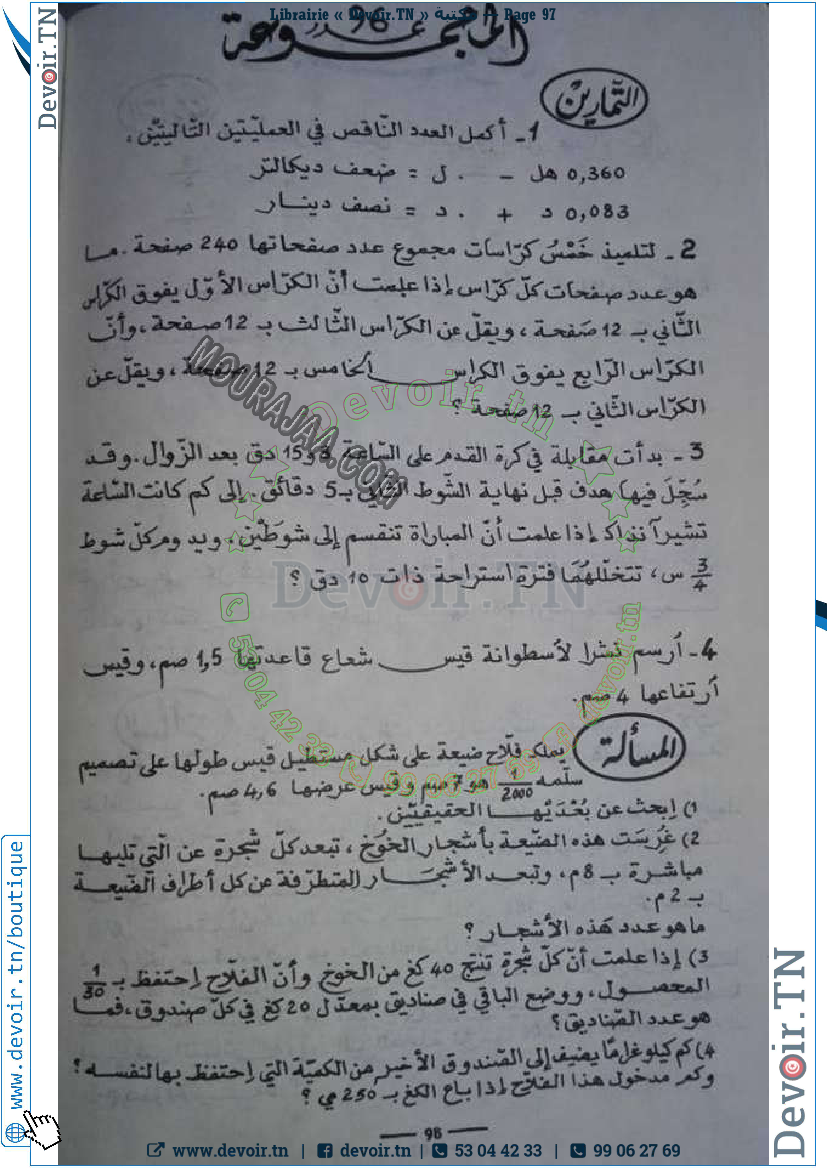 Librairie « Devoir.TN » مكتبة — Page 97
المجموعة عدد 96
Devoir.TN
التمارين
1 - أكمل العدد النّاقص في العمليّتين التّاليتين :
0,360 هل - . ل = ضعف ديكالتر
0,083 د + . د = نصف دينار
2 - لتلميذ خَمْسُ كرّاسات مجموع عدد صفحاتها 240 صفحة . ما
هو عدد صفحات كلّ كرّاس إذا علمت أنّ الكرّاس الأوّل يفوق الكرّاس
الثّاني بـ 12 صَفحة ، ويقلّ عن الكرّاس الثّالث بـ 12 صفحة ، وأنّ
الكرّاس الرّابع يفوق الكراس الخامس بـ 12 صفحة ، ويقلّ عن
الكرّاس الثّاني بـ 12 صفحة ؟
MOURAJAA.COM
Devoir.tn
3 - بدأت مقابلة في كرة القدم على السّاعة 3 و 15 دق بعد الزّوال . وقد
سُجِّلَ فيها هدف قبل نهاية الشّوط الثّاني بـ 5 دقائق . إلى كم كانت السّاعة
تشير آنذاك إذا علمت أنّ المباراة تنقسم إلى شوطَيْن ، ويدوم كلّ شوط
3/4 س ، تتخلّلهُمَا فترة استراحة ذات 10 دق ؟
Devoir.TN
53 04 42 33
99 06 27 69
devoir.tn
4 - أرسم نشرا لأسطوانة قيس شعاع قاعدتها 1,5 صم ، وقيس
أرتفاعها 4 صم .
المسألة
يملك فلّاح ضيعة على شكل مستطيل قيس طولها على تصميم
سلّمه 1/2000 هو 7 صم وقيس عرضها 4,6 صم .
1) إبحث عن بُعْدَيْها الحقيقيّين .
2) غُرِسَت هذه الضّيعة بأشجار الخَوخ ، تبعد كلّ شجرة عن الّتي تليها
مباشرة بـ 8 م ، وتبعد الأشجار المتطرّفة عن كل أطراف الضّيعة
بـ 2 م .
ما هو عدد هذه الأشجار ؟
3) إذا علمت أنّ كلّ شجرة تنتج 40 كغ من الخوخ وأنّ الفلّاح إحتفظ بـ 1/30
المحصول ، ووضع الباقي في صناديق بمعدّل 20 كغ في كلّ صندوق ، فما
هو عدد الصّناديق ؟
4) كم كيلوغراما يضيف إلى الصّندوق الأخير من الكميّة التي إحتفظ بها لنفسه ؟
وكم مدخول هذا الفلّاح إذا باع الكغ بـ 250 مي ؟
— 98 —
www.devoir.tn/boutique
Devoir.TN
www.devoir.tn | devoir.tn | 53 04 42 33 | 99 06 27 69